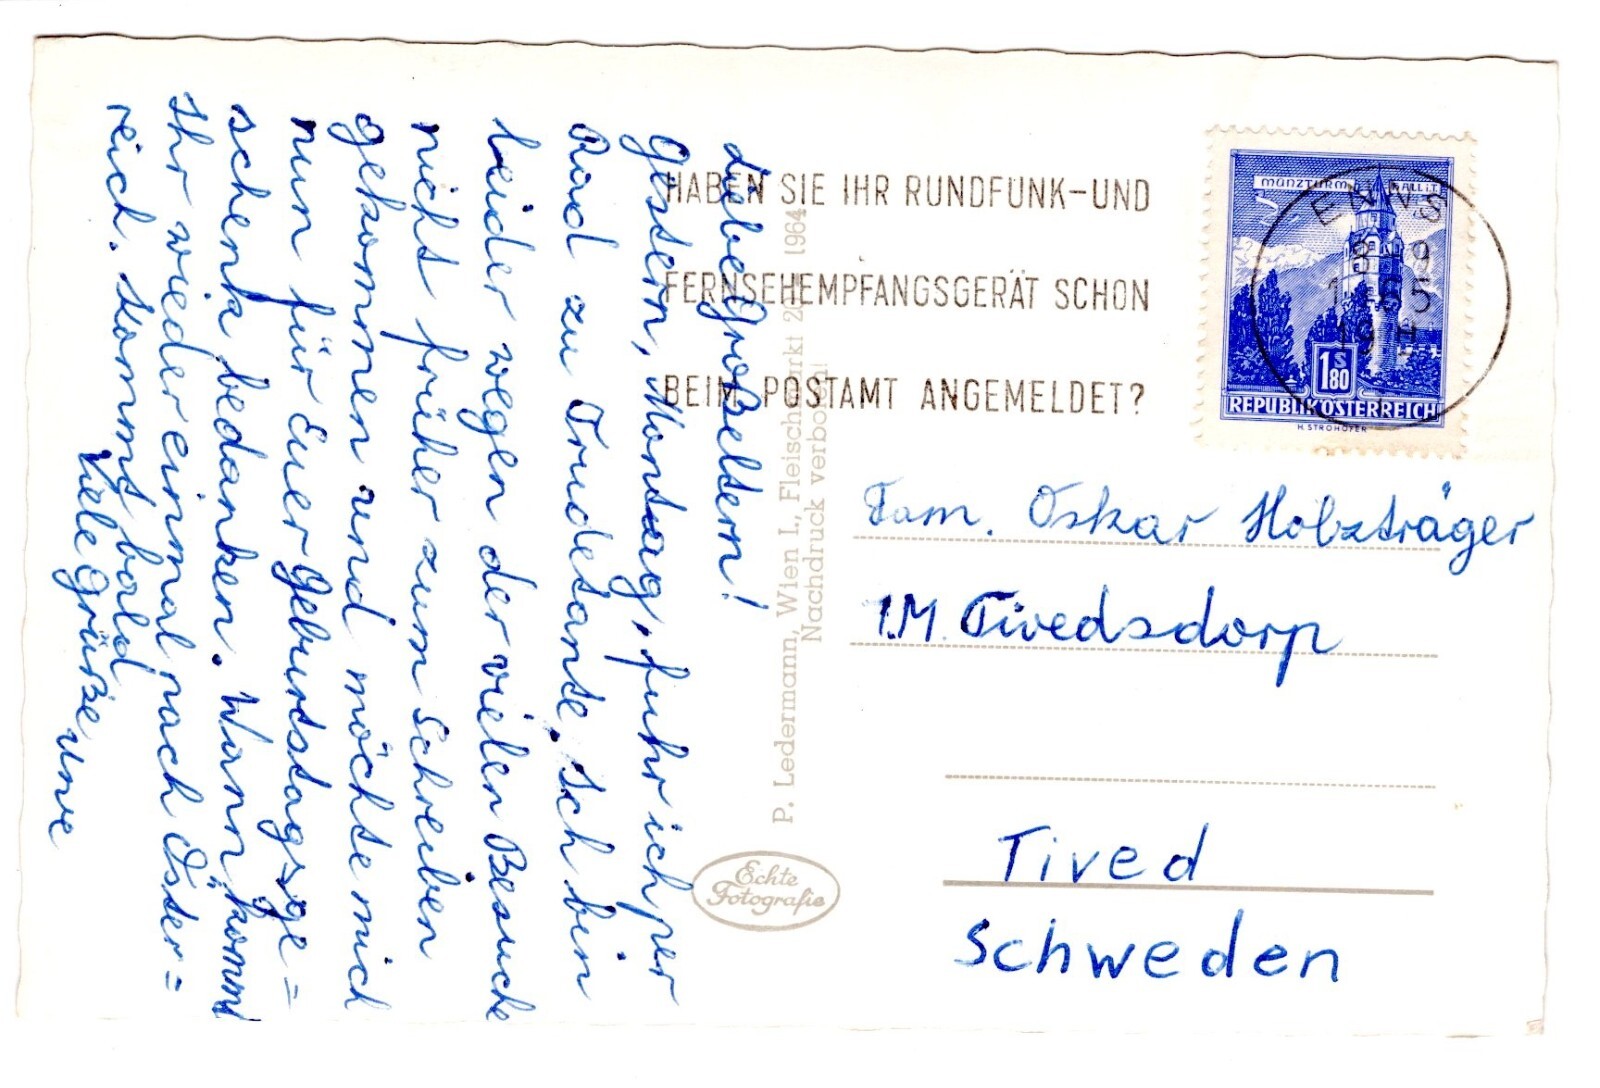 Liebe Großeltern!
Gestern, Montag, fuhr ich per
Rad zu Trudetante. Ich bin
leider wegen der vielen Besuche
nicht früher zum Schreiben
gekommen und möchte mich
nun für Euer Geburtstagsge=
schenk bedanken. Wann kommt
Ihr wieder einmal nach Öster=
reich. Kommt bald
Viele Grüße
HABEN SIE IHR RUNDFUNK-UND
FERNSEHEMPFANGSGERÄT SCHON
BEIM POSTAMT ANGEMELDET?
P. Ledermann, Wien I., Fleischmarkt 20 1964
Nachdruck verboten!
Echte
Fotografie
MÜNZTURM HALL i.T.
1 S 80
REPUBLIK ÖSTERREICH
H. STROHOFER
ENNS
Fam. Oskar Holzträger
I.M. Tivedsdorp
Tived
Schweden